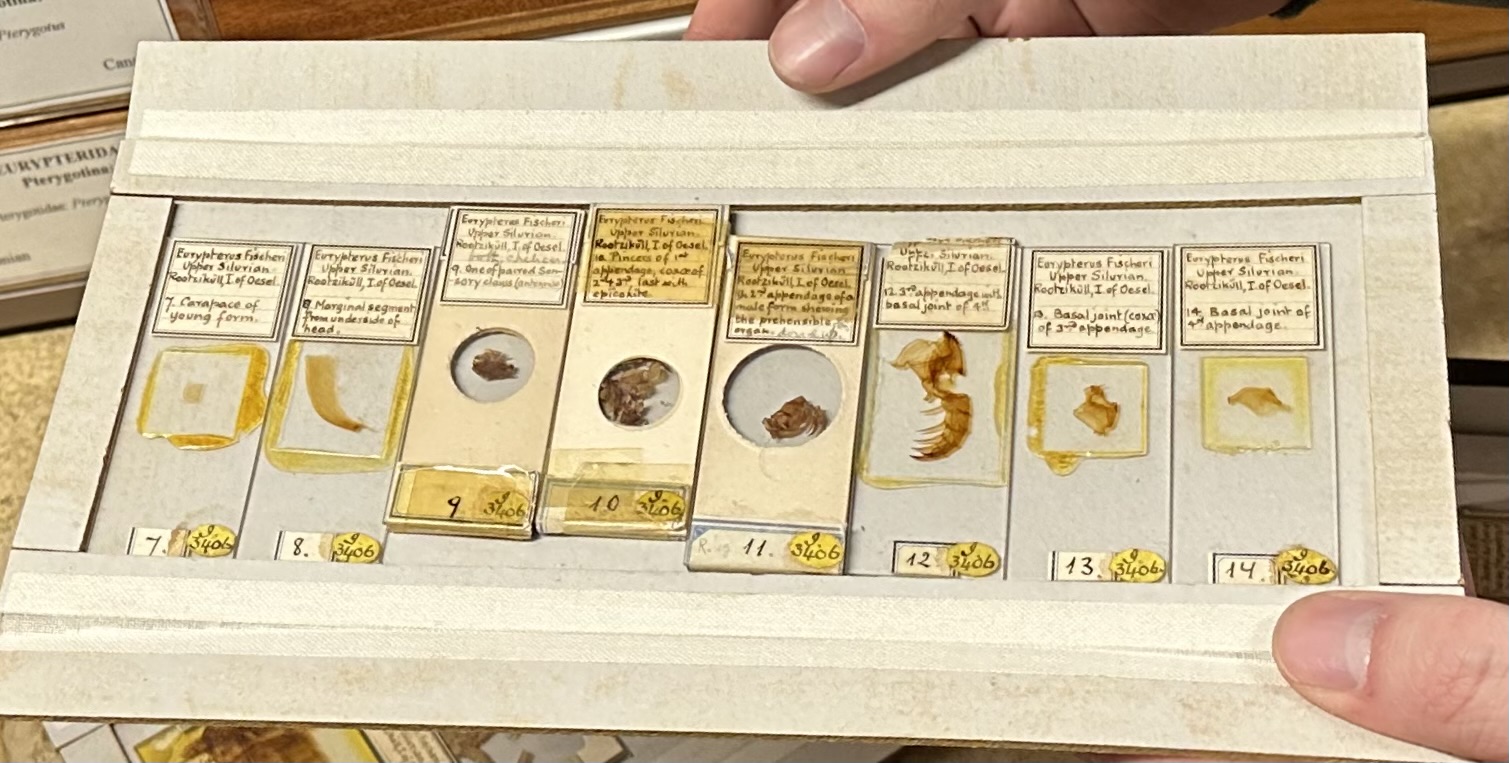 Pterygotus
EURYPTERIDA
Pterygotina
Eurypterus Fischeri
Upper Silurian.
Rootzikull, I. of Oesel.
7. Carapace of
young form.
7.
I 3406
Eurypterus Fischeri
Upper Silurian.
Rootzikull, I. of Oesel.
8. Marginal segment
from underside of
head.
8.
I 3406
Eurypterus Fischeri
Upper Silurian.
Rootzikull, I. of Oesel.
9. One of paired Sen-
sory claws (antennae
9
I 3406
Eurypterus Fischeri
Upper Silurian.
Rootzikull, I. of Oesel.
10. Pincess of 1st
appendage, coxae of
2nd & 3rd last with
epicoxite.
10
I 3406
Eurypterus Fischeri
Upper Silurian.
Rootzikull, I. of Oesel.
2nd appendage of a
male form shewing
the prehensible
organ.
11.
I 3406
Upper Silurian.
Rootzikull, I. of Oesel.
12. 3rd appendage with
basal joint of 4th
12
I 3406
Eurypterus Fischeri
Upper Silurian.
Rootzikull, I. of Oesel.
13. Basal joint (coxa)
of 3rd appendage.
13.
I 3406
Eurypterus Fischeri
Upper Silurian.
Rootzikull, I. of Oesel.
14. Basal joint of
4th appendage.
14.
I 3406